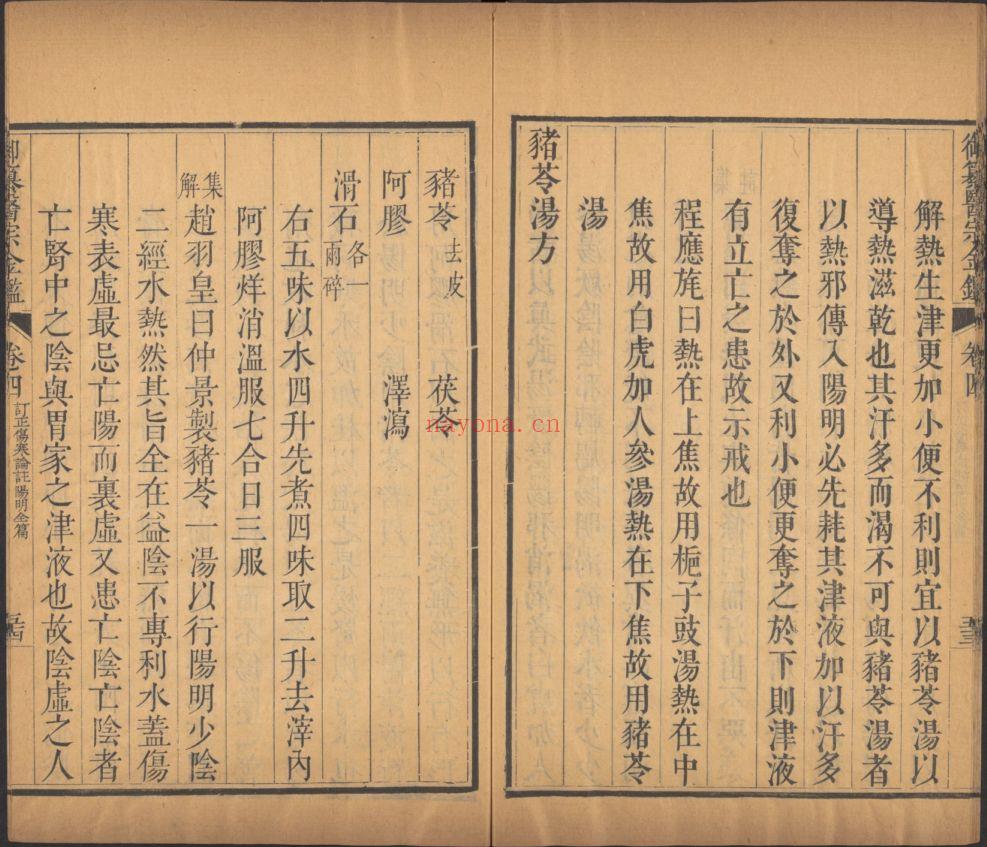 御纂醫宗金鑑 卷四
解熱生津更加小便不利則宜以豬苓湯以
導熱滋乾也其汗多而渴不可與豬苓湯者
以熱邪傳入陽明必先耗其津液加以汗多
復奪之於外又利小便更奪之於下則津液
有立亡之患故示戒也
程應旄曰熱在上焦故用梔子豉湯熱在中
焦故用白虎加人參湯熱在下焦故用豬苓
湯
豬苓湯方
豬苓去皮 茯苓
阿膠 澤瀉
滑石各一兩碎
右五味以水四升先煮四味取二升去滓內
阿膠烊消溫服七合日三服
集解趙羽皇曰仲景製豬苓一湯以行陽明少陰
二經水熱然其旨全在益陰不專利水蓋傷
寒表虛最忌亡陽而裏虛又患亡陰亡陰者
亡腎中之陰與胃家之津液也故陰虛之人
御纂醫宗金鑑 卷四 訂正傷寒論註陽明全篇
nayona.cn